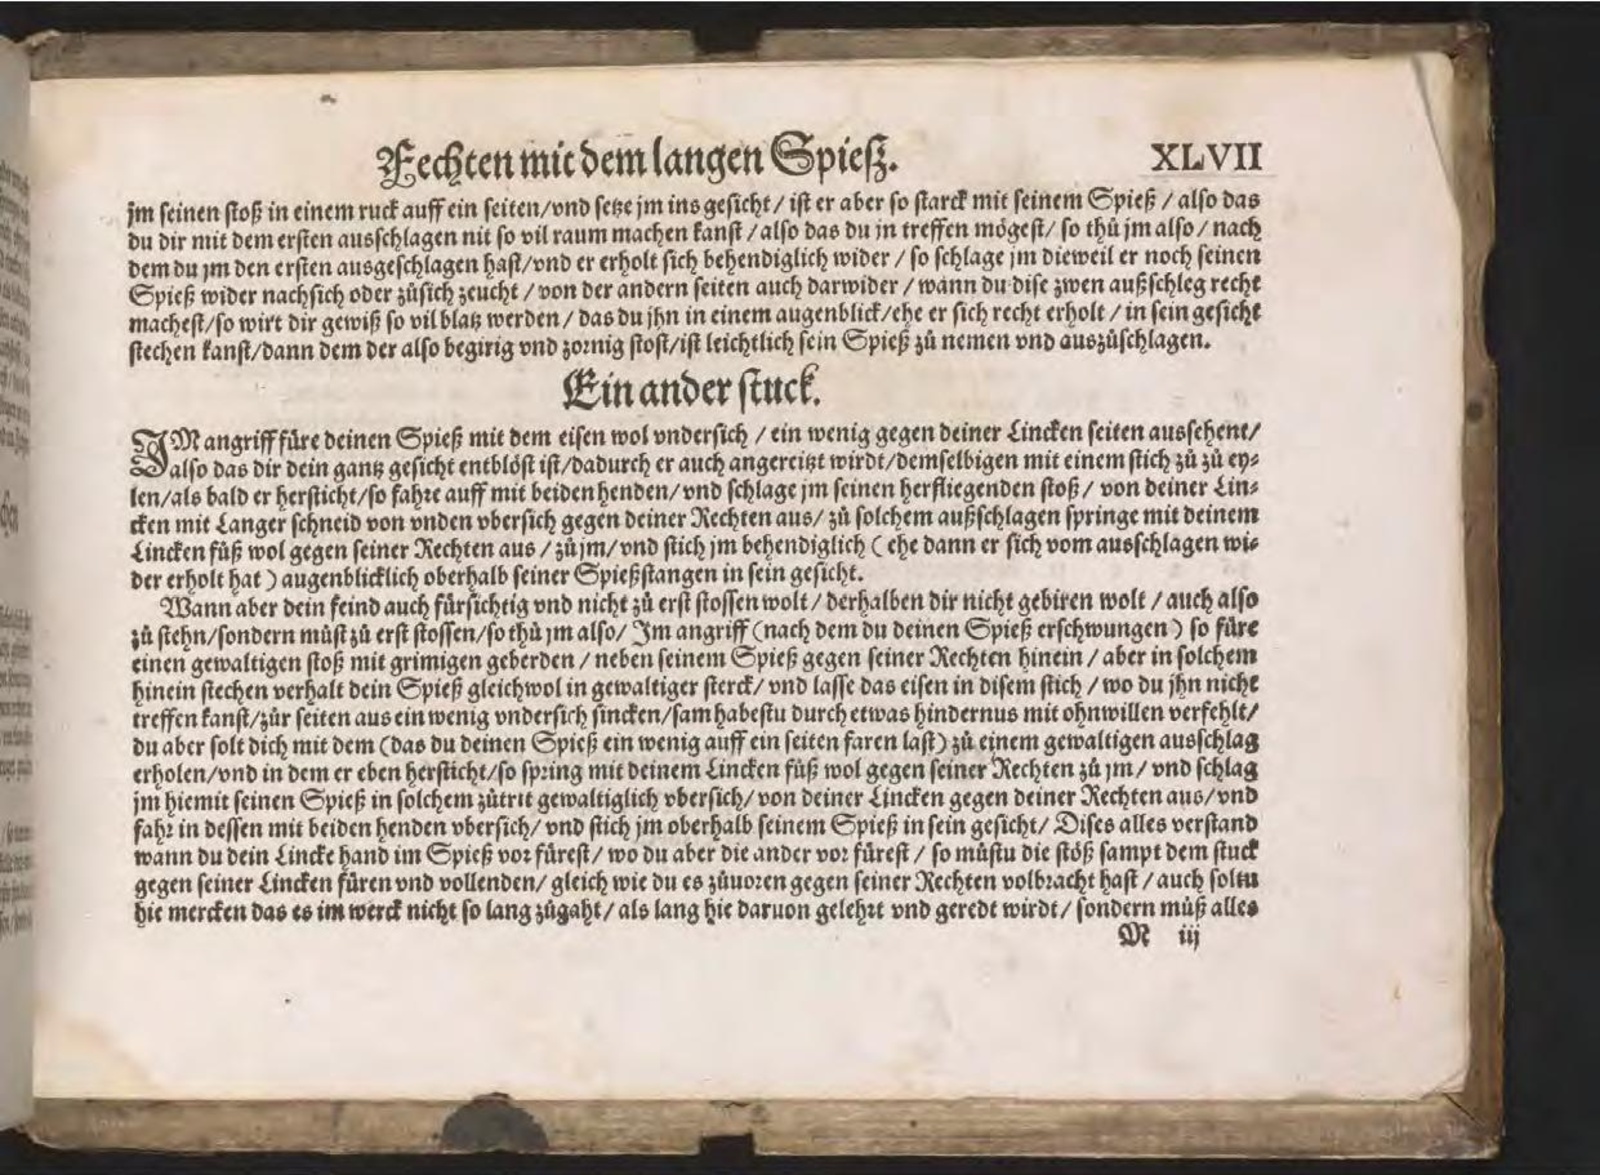 Fechten mit dem langen Spiesz. XLVII
jm seinen stoß in einem ruck auff ein seiten/vnd setze jm ins gesicht/ ist er aber so starck mit seinem Spieß / also das
du dir mit dem ersten ausschlagen nit so vil raum machen kanst / also das du jn treffen mögest/ so thů jm also / nach
dem du jm den ersten ausgeschlagen hast/vnd er erholt sich behendiglich wider / so schlage jm dieweil er noch seinen
Spieß wider nachsich oder zůsich zeucht / von der andern seiten auch darwider / wann du dise zwen außschleg recht
machest/so wirt dir gewiß so vil blatz werden / das du jhn in einem augenblick/ehe er sich recht erholt / in sein gesicht
stechen kanst/dann dem der also begirig vnd zornig stost/ist leichtlich sein Spieß zů nemen vnd auszůschlagen.
Ein ander stuck.
IM angriff füre deinen Spieß mit dem eisen wol vndersich / ein wenig gegen deiner Lincken seiten aussehent/
also das dir dein gantz gesicht entblöst ist/dadurch er auch angereitzt wirdt/demselbigen mit einem stich zů zů ey⸗
len/als bald er hersticht/so fahre auff mit beiden henden/vnd schlage jm seinen herfliegenden stoß / von deiner Lin⸗
cken mit Langer schneid von vnden vbersich gegen deiner Rechten aus/ zů solchem außschlagen springe mit deinem
Lincken fůß wol gegen seiner Rechten aus / zů jm/vnd stich jm behendiglich ( ehe dann er sich vom ausschlagen wi⸗
der erholt hat ) augenblicklich oberhalb seiner Spießstangen in sein gesicht.
Wann aber dein feind auch fürsichtig vnd nicht zů erst stossen wolt / derhalben dir nicht gebiren wolt / auch also
zů stehn/sondern můst zů erst stossen/so thů jm also/ Im angriff (nach dem du deinen Spieß erschwungen ) so füre
einen gewaltigen stoß mit grimigen geberden / neben seinem Spieß gegen seiner Rechten hinein / aber in solchem
hinein stechen verhalt dein Spieß gleichwol in gewaltiger sterck/ vnd lasse das eisen in disem stich / wo du jhn nicht
treffen kanst/zůr seiten aus ein wenig vndersich sincken/sam habestu durch etwas hindernus mit ohnwillen verfehlt/
du aber solt dich mit dem (das du deinen Spieß ein wenig auff ein seiten faren last) zů einem gewaltigen ausschlag
erholen/vnd in dem er eben hersticht/so spring mit deinem Lincken fůß wol gegen seiner Rechten zů jm / vnd schlag
jm hiemit seinen Spieß in solchem zůtrit gewaltiglich vbersich/ von deiner Lincken gegen deiner Rechten aus/vnd
fahr in dessen mit beiden henden vbersich/ vnd stich jm oberhalb seinem Spieß in sein gesicht/ Dises alles verstand
wann du dein Lincke hand im Spieß vor fürest/ wo du aber die ander vor fürest / so můstu die stöß sampt dem stuck
gegen seiner Lincken füren vnd vollenden/ gleich wie du es zůuoren gegen seiner Rechten volbracht hast / auch soltu
hie mercken das es im werck nicht so lang zůgaht/ als lang hie daruon gelehrt vnd geredt wirdt/ sondern můß alles
M iij